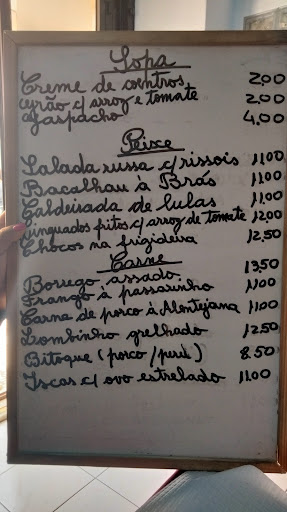 Sopa
Creme de coentros 2,00
Grão c/ arroz e tomate 2.00
Gaspacho 4,00
Peixe
Salada russa c/ rissois 11.00
Bacalhau à Brás 11.00
Caldeirada de lulas 11.00
Linguados fritos c/ arroz de tomate 12,00
Chocos na frigideira 12,50
Carne
Borrego assado 13,50
Frango à passarinho 11,00
Carne de porco à Alentejana 11.00
Lombinho grelhado 12,50
Bitoque (porco/peru) 8.50
Iscas c/ ovo estrelado 11.00